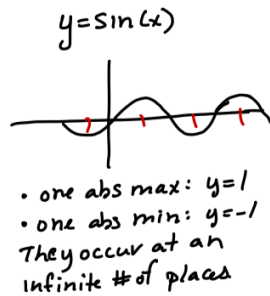 y=sin(x)
• one abs max: y=1
• one abs min: y=-1
They occur at an
infinite # of places